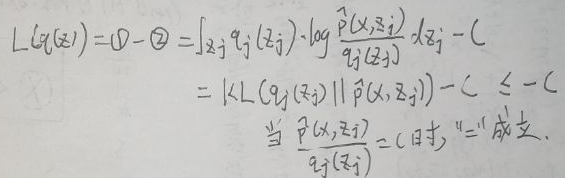 L(q(z)) = ① - ② = ∫_{z_j} q_j(z_j) · log \frac{\hat{p}(x, z_j)}{q_j(z_j)} dz_j - C
= KL(q_j(z_j) || \hat{p}(x, z_j)) - C ≤ -C
当 \frac{\hat{p}(x, z_j)}{q_j(z_j)} = C 时, "=" 成立.